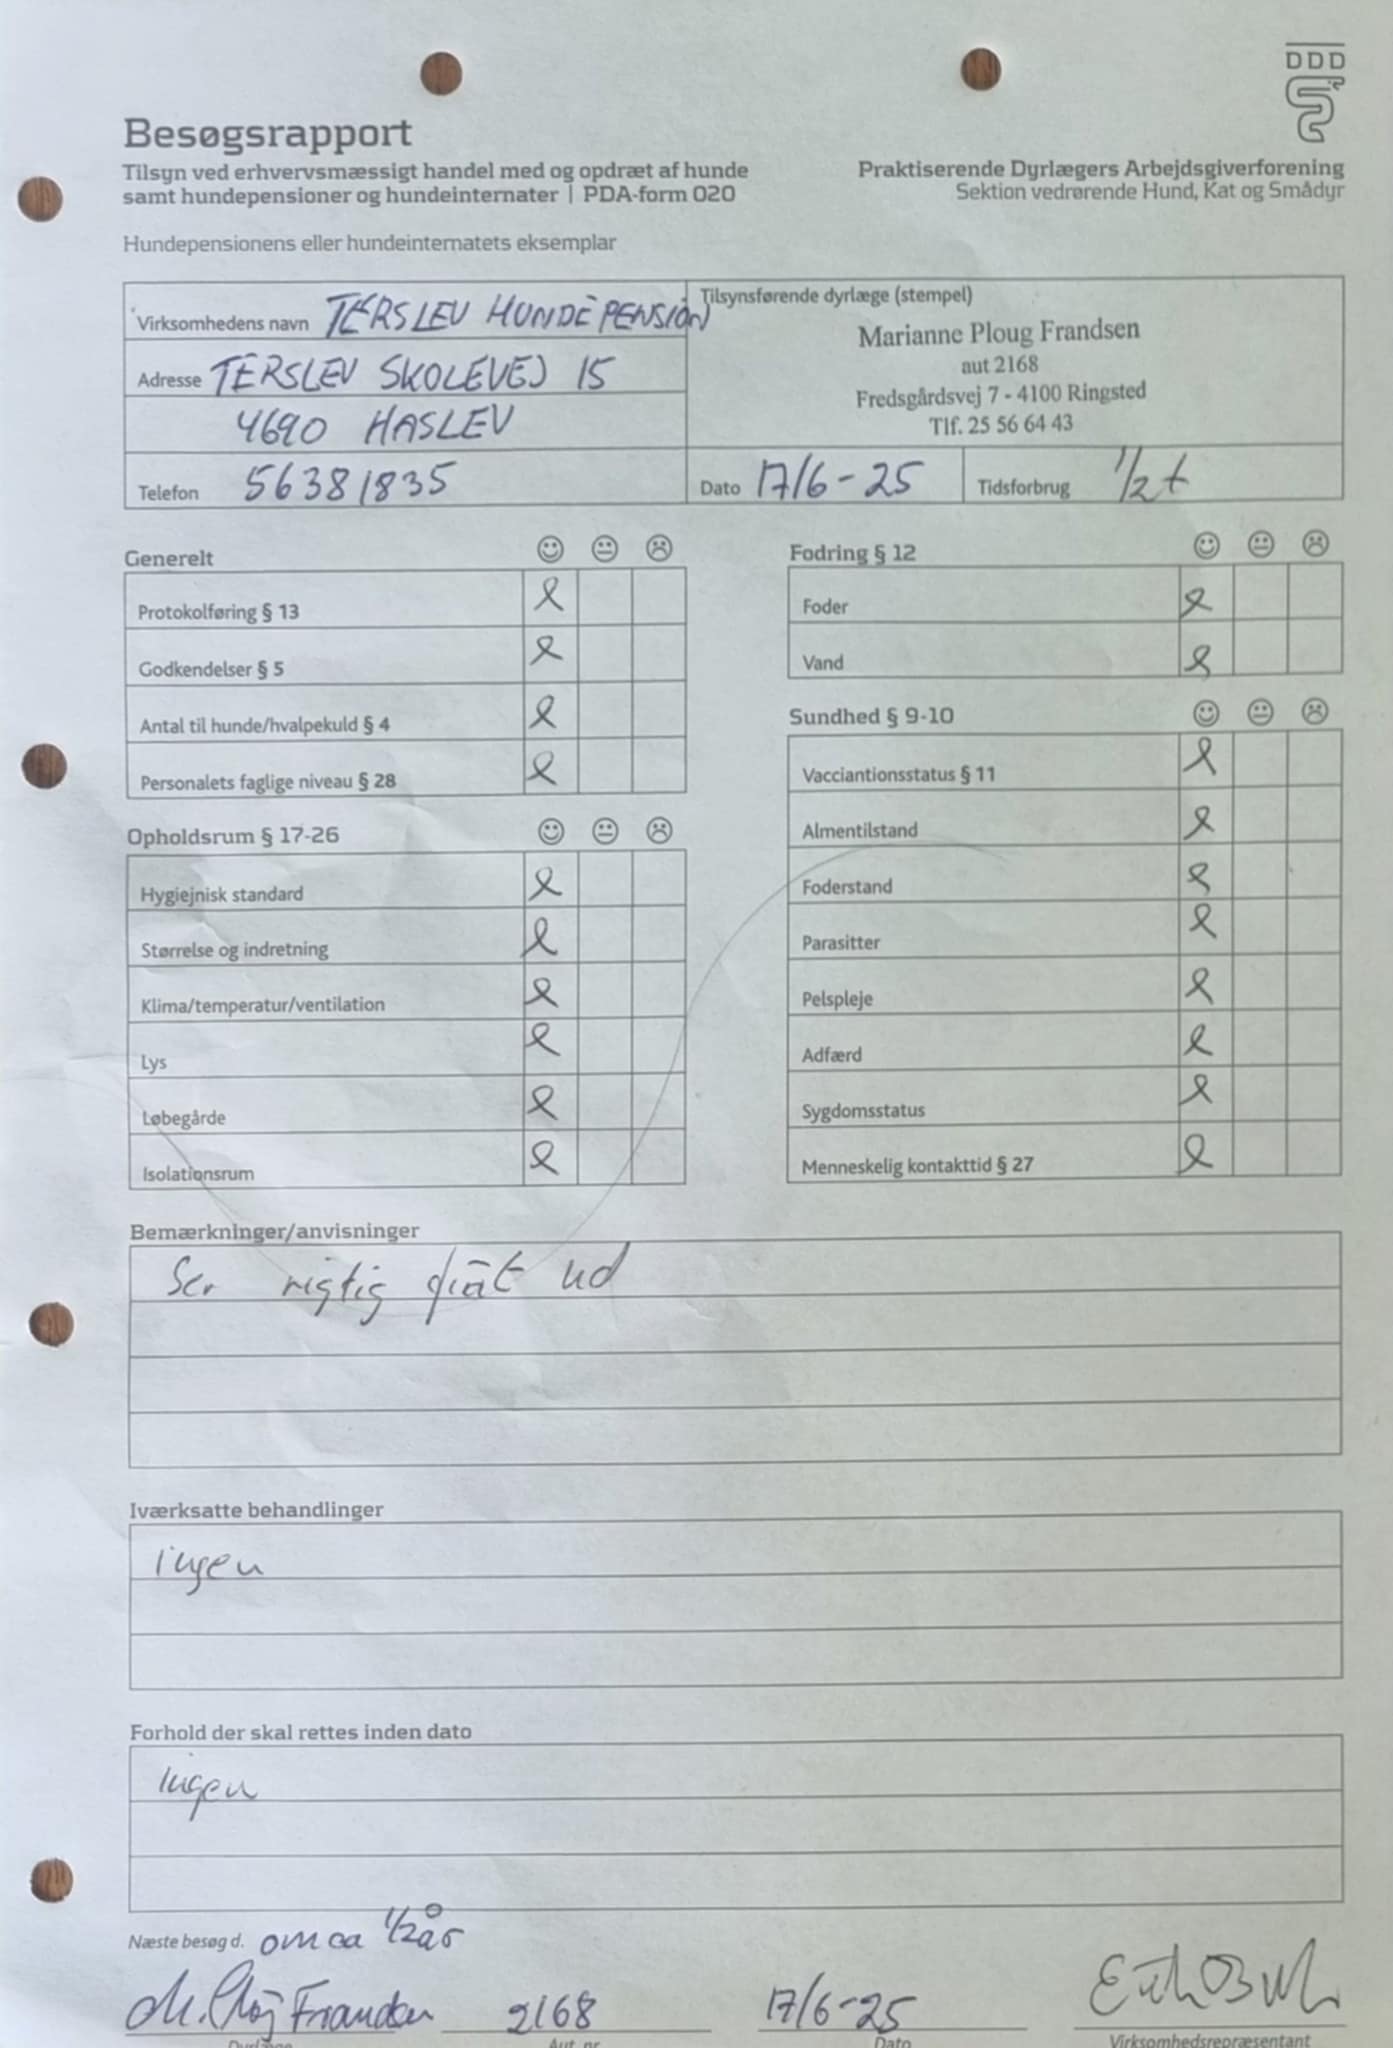 DDD
Besøgsrapport
Tilsyn ved erhvervsmæssigt handel med og opdræt af hunde
samt hundepensioner og hundeinternater | PDA-form 020
Praktiserende Dyrlægers Arbejdsgiverforening
Sektion vedrørende Hund, Kat og Smådyr
Hundepensionens eller hundeinternatets eksemplar
Virksomhedens navn TERSLEV HUNDEPENSION
Adresse TERSLEV SKOLEVEJ 15
4690 HASLEV
Telefon 56381835
Tilsynsførende dyrlæge (stempel)
Marianne Ploug Frandsen
aut 2168
Fredsgårdsvej 7 - 4100 Ringsted
Tlf. 25 56 64 43
Dato 17/6-25 Tidsforbrug 1/2 t
Generelt
Protokolføring § 13
Godkendelser § 5
Antal til hunde/hvalpekuld § 4
Personalets faglige niveau § 28
Opholdsrum § 17-26
Hygiejnisk standard
Størrelse og indretning
Klima/temperatur/ventilation
Lys
Løbegårde
Isolationsrum
Fodring § 12
Foder
Vand
Sundhed § 9-10
Vacciantionsstatus § 11
Almentilstand
Foderstand
Parasitter
Pelspleje
Adfærd
Sygdomsstatus
Menneskelig kontakttid § 27
Bemærkninger/anvisninger
Ser rigtig fint ud
Iværksatte behandlinger
ingen
Forhold der skal rettes inden dato
Ingen
Næste besøg d. om ca 1/2 år
M. Ploug Frandsen 2168 17/6-25
Dyrlæge Aut. nr. Dato Virksomhedsrepræsentant